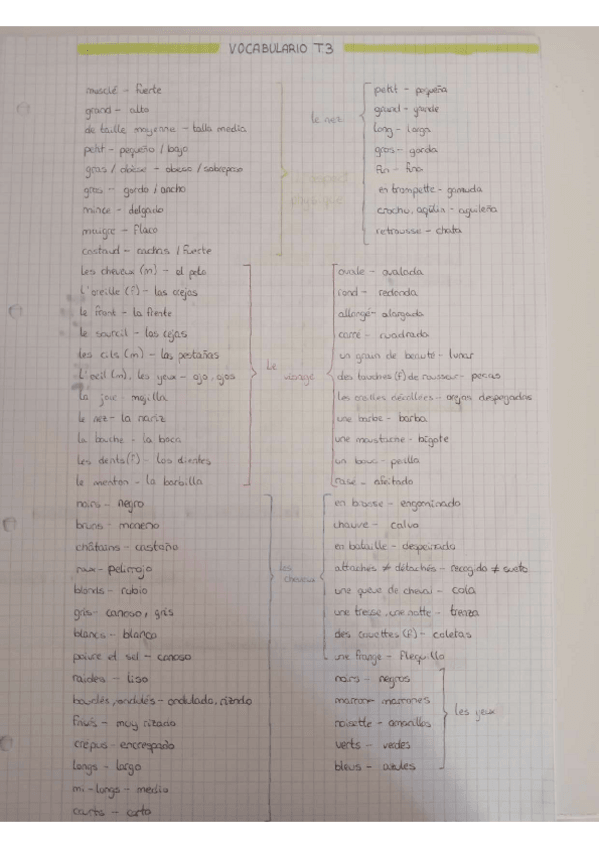 VOCABULARIO T3
musclé - fuerte
grand - alto
de taille moyenne - talla media
petit - pequeño / bajo
gras / obèse - obeso / sobrepeso
gros - gordo / ancho
mince - delgado
maigre - flaco
costaud - cachas / fuerte
aspect
physique
le nez
petit - pequeña
grand - grande
long - larga
gros - gorda
fin - fina
en trompette - gamuda
crochu, aquilin - aguileña
retrousse - chata
les cheveux (m) - el pelo
l'oreille (f) - las orejas
le front - la frente
le sourcil - las cejas
les cils (m) - las pestañas
L'oeil (m), les yeux - ojo, ojos
la joie - mejilla
le nez - la nariz
la bouche - la boca
les dents (f) - los dientes
le menton - la barbilla
Le
visage
ovale - ovalada
rond - redonda
allongé - alargada
carré - cuadrada
un grain de beauté - lunar
des touches (f) de rousseur - pecas
les oreilles décollées - orejas despegadas
une barbe - barba
une moustache - bigote
un bouc - perilla
rasé - afeitado
noirs - negro
bruns - moreno
châtains - castaño
roux - pelirrojo
blonds - rubio
gris - canoso, gris
blancs - blanco
poivre et sel - canoso
raides - liso
bouclés, ondulés - ondulado, rizado
frisés - muy rizado
crépus - encrespado
longs - largo
mi-longs - medio
courts - corto
les
cheveux
en brosse - engominado
chauve - calvo
en bataille - despeinado
attachés ≠ détachés - recogido ≠ suelto
une queue de cheval - cola
une tresse, une natte - trenza
des couettes (f) - coletas
une frange - flequillo
noirs - negros
marron - marrones
noisette - amarillos
verts - verdes
bleus - azules
les yeux